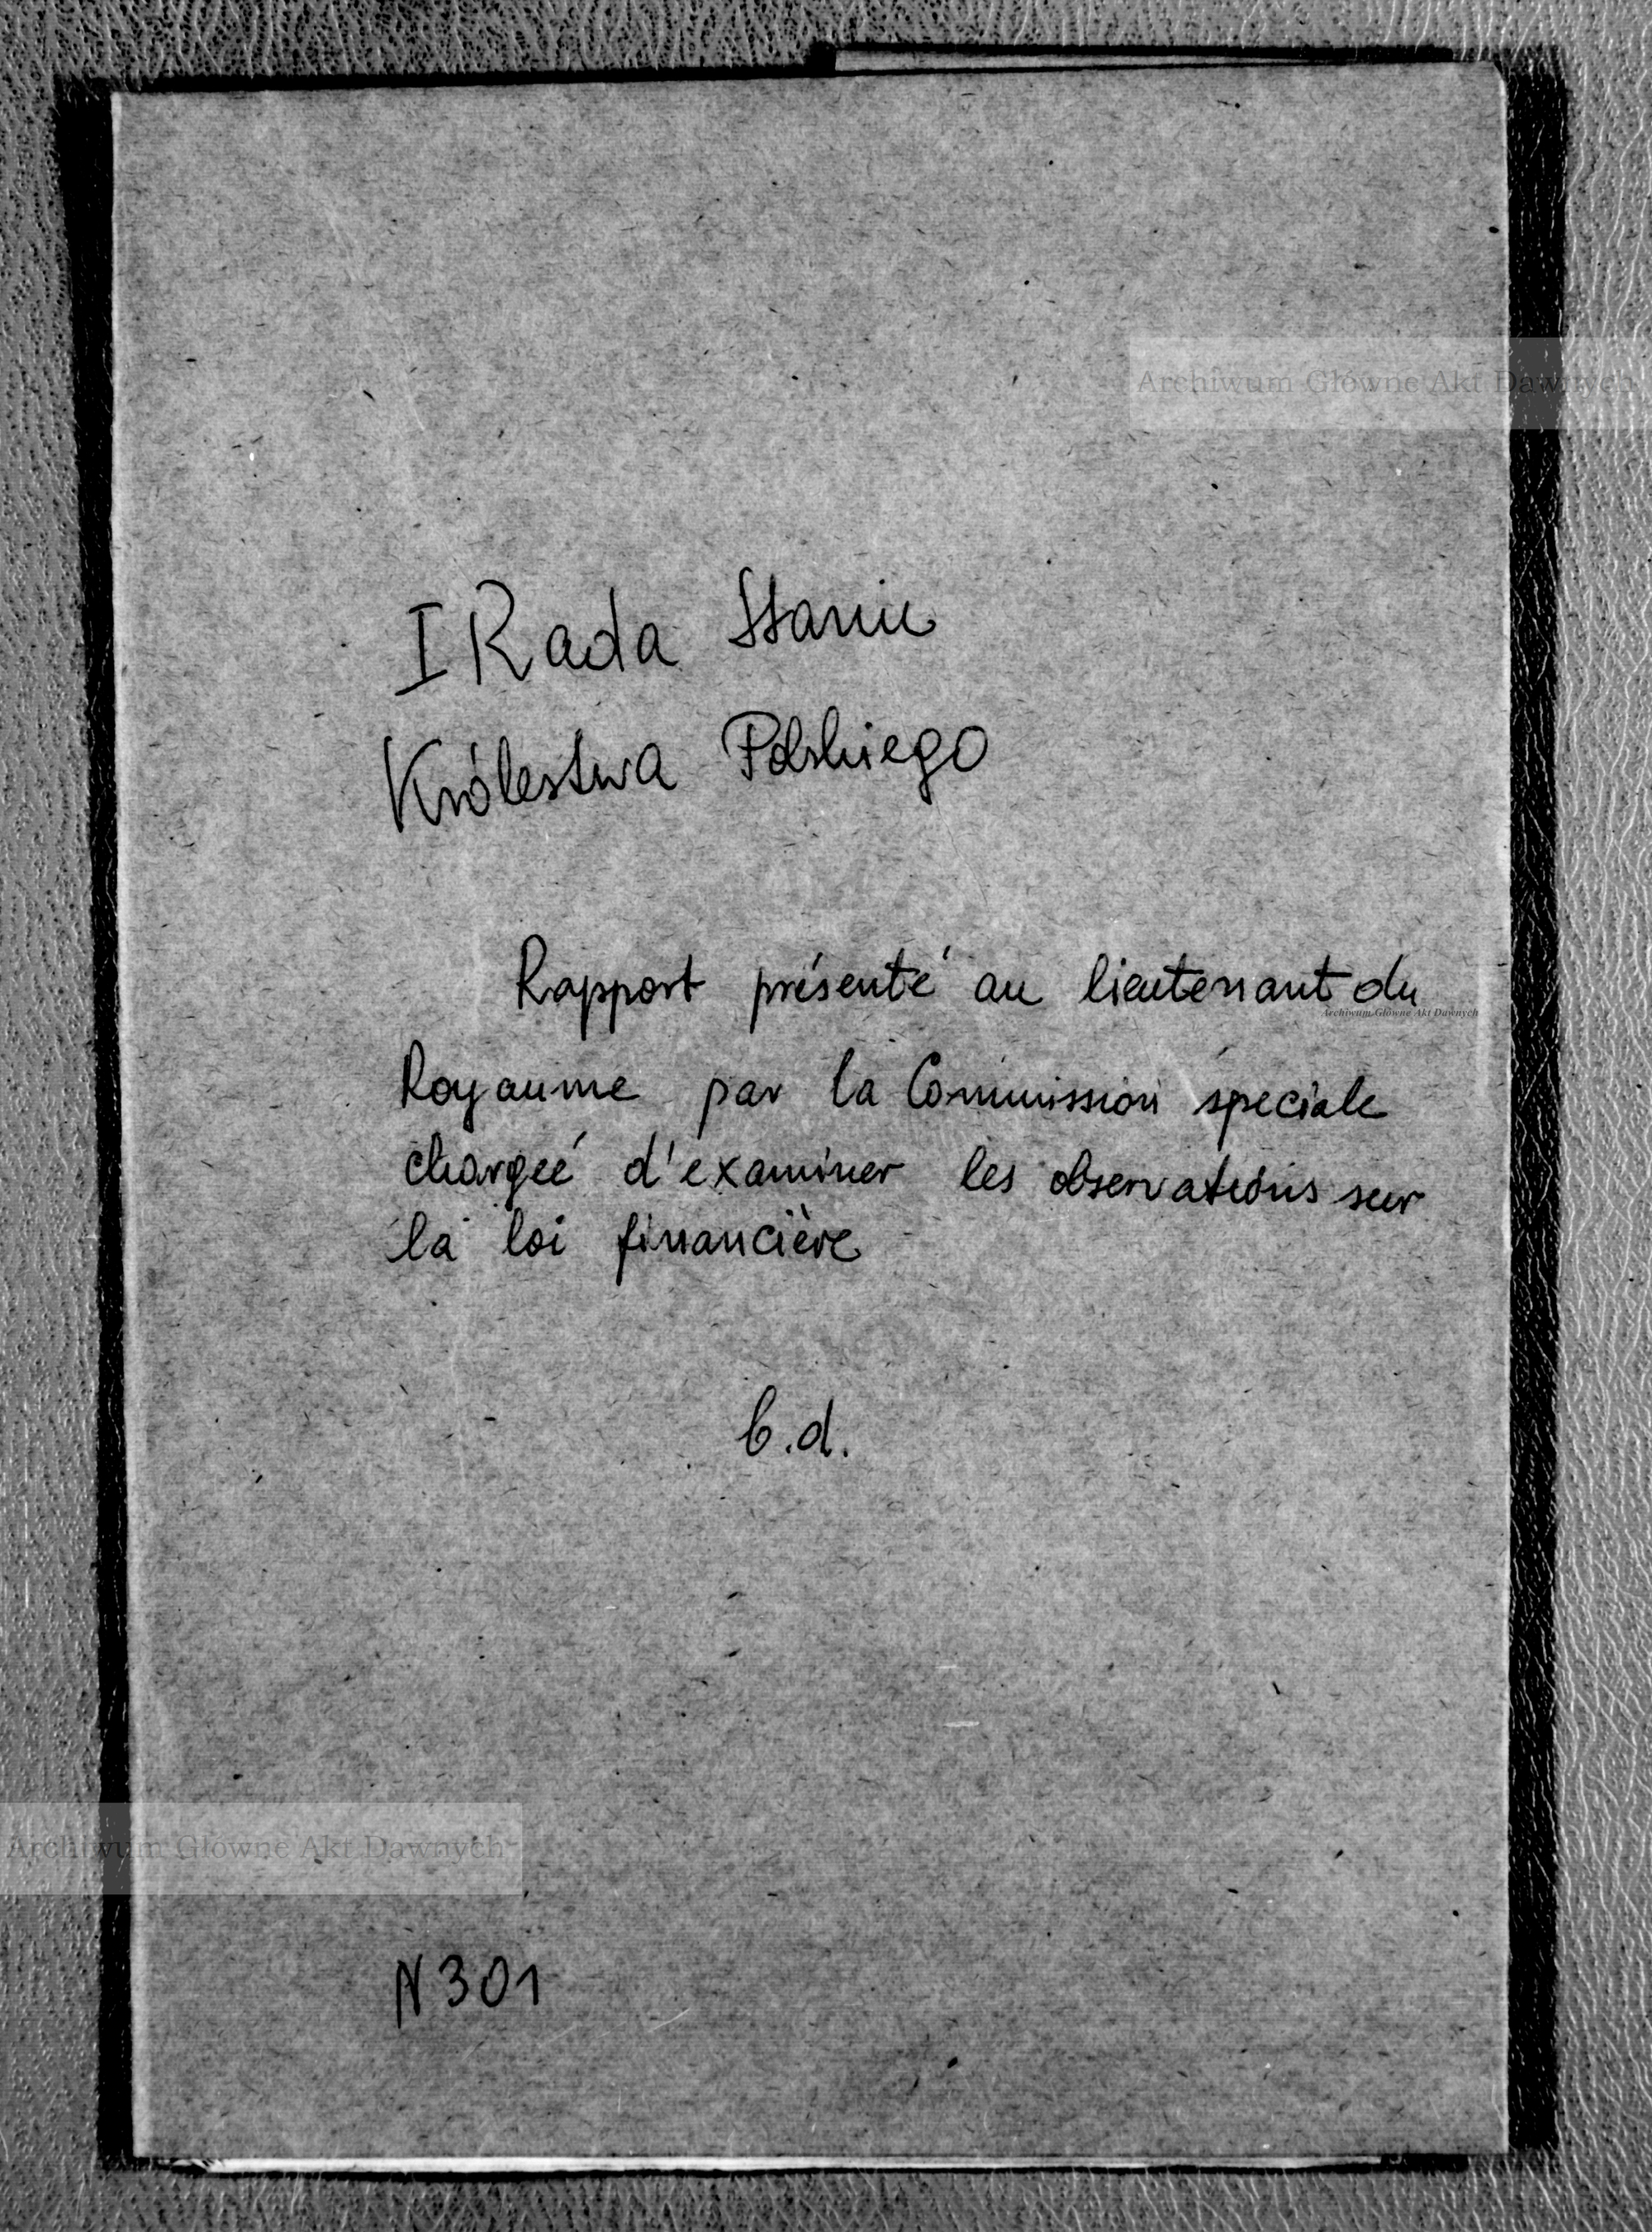 Archiwum Główne Akt Dawnych
I Rada Stanu
Królestwa Polskiego
Rapport présenté au lieutenant du
Archiwum Główne Akt Dawnych
Royaume par la Commission spéciale
chargeé d'examiner les observations sur
la loi financière
b.d.
Archiwum Główne Akt Dawnych
N 301